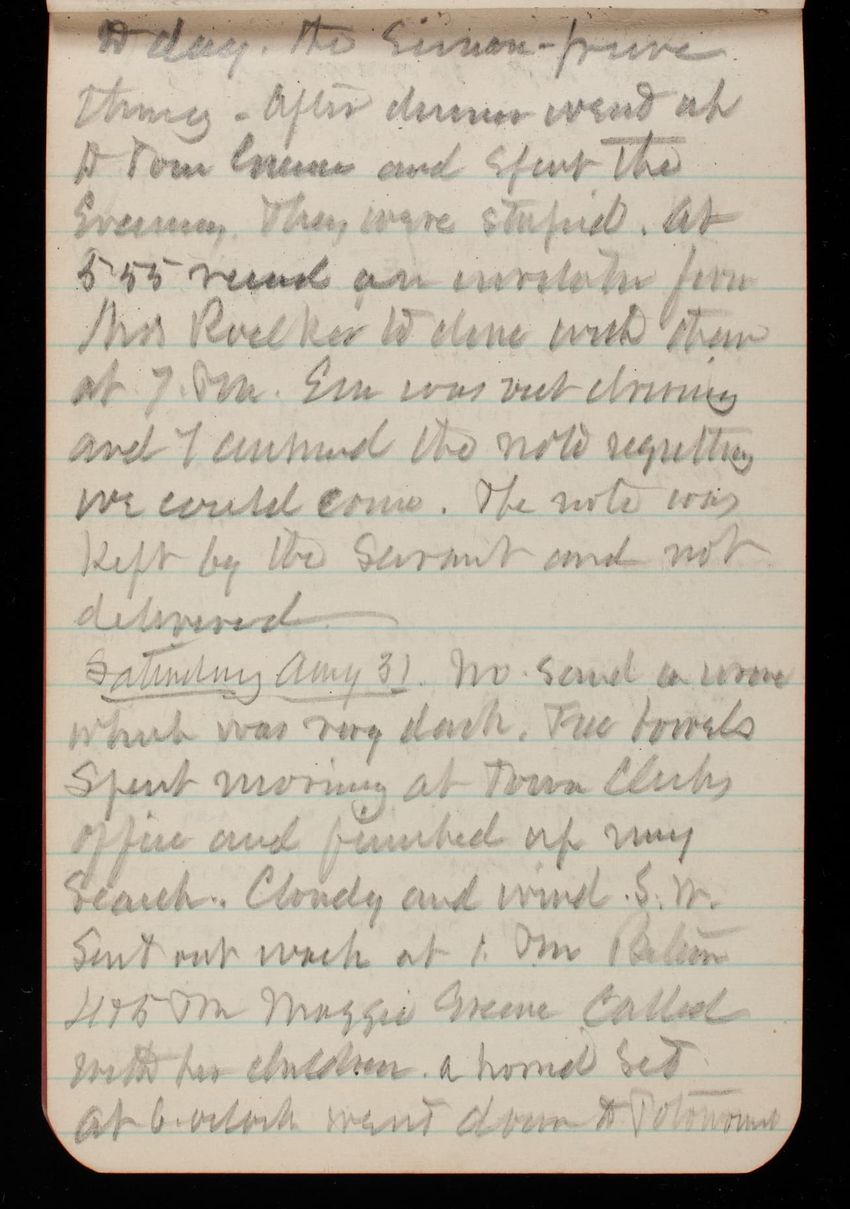 to day. The Simon-pure
thing - After dinner went up
to Tom Greene and spent the
Evening. They were stupid. At
5 55 received an invitation from
Mrs Roelker to dine with them
at 7. P.M. Em was out driving
and I answered the note regretting
we could come. The note was
Kept by the Servant and not
delivered
Saturday Aug 31. No. Send a wove
which was very dark. Free bowels
Spent morning at Town Clerks
office and finished up my
Search. Cloudy and wind S.W.
Sent out wash at 1. P.M.
4 to 5 PM Maggie Greene Called
with her children. a horrid Set
At 6. oclock went down to Potowomut